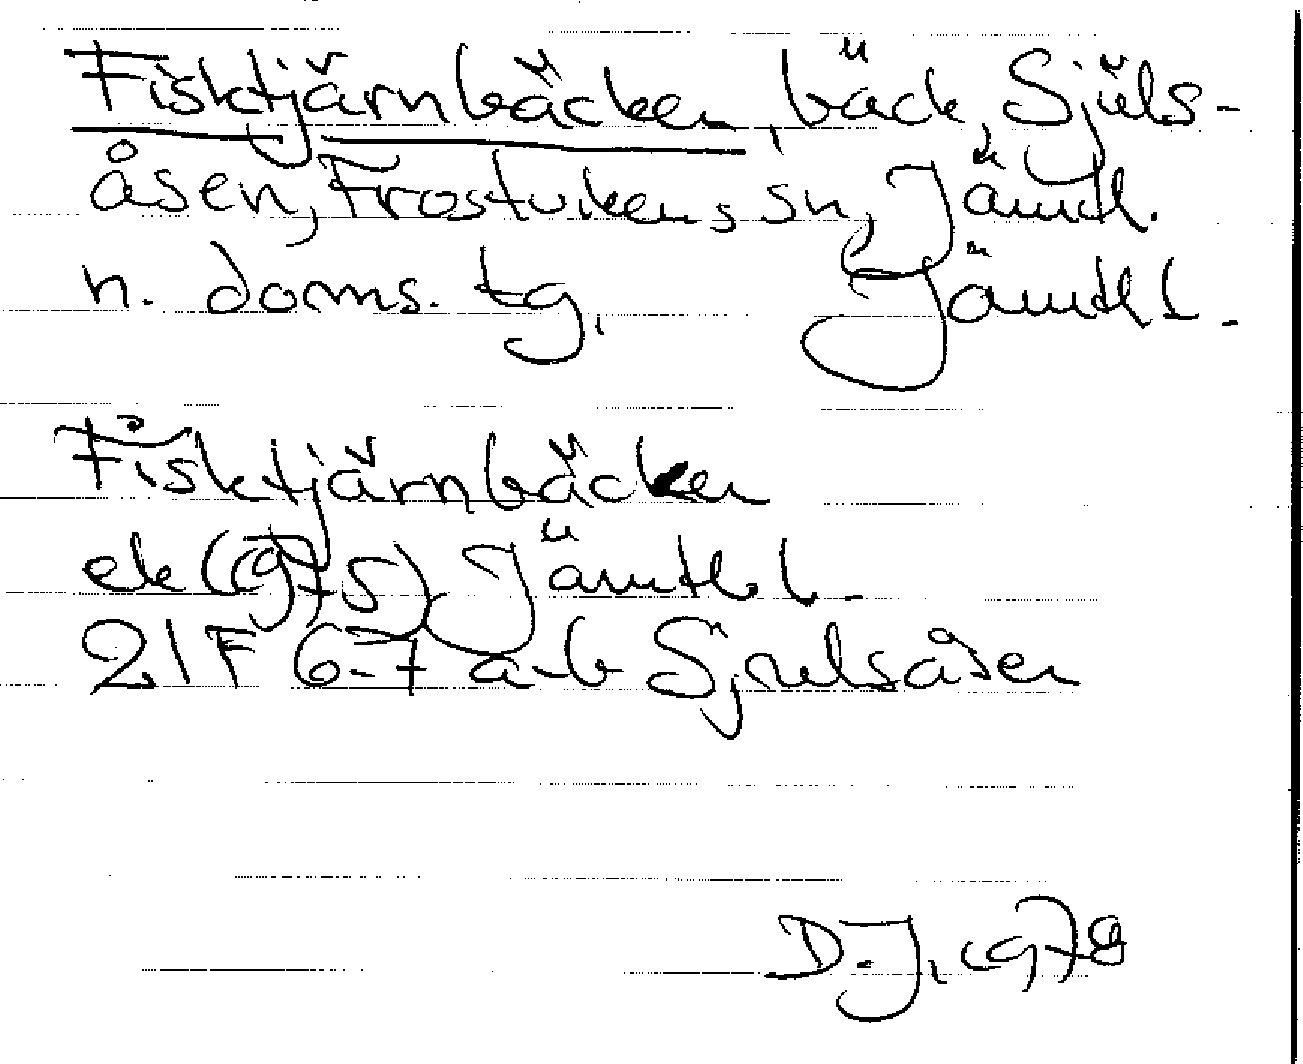 Fisktjärnbäcken, bäck, Sjuls-
åsen, Frostvikens sn, Jämtl.
n. doms. tg, Jämtl l.
Fisktjärnbäcken
ek (1975) Jämtl. l.
21F 6-7 a-b Sjulsåsen
D.J. 1978